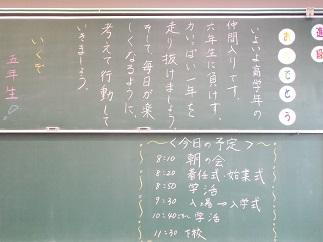 進級
おめでとう
いよいよ高学年の
仲間入りです。
六年生に負けず、
力いっぱい一年を
走り抜けましょう。
そして、毎日が楽
しくなるように、
考えて行動して
いきましょう。
いくぞ
五年生!
〜<今日の予定>〜
8:10 朝の会
8:20 着任式・始業式
8:50 学活
9:30 入場→入学式
10:40ごろ 学活
11:30 下校